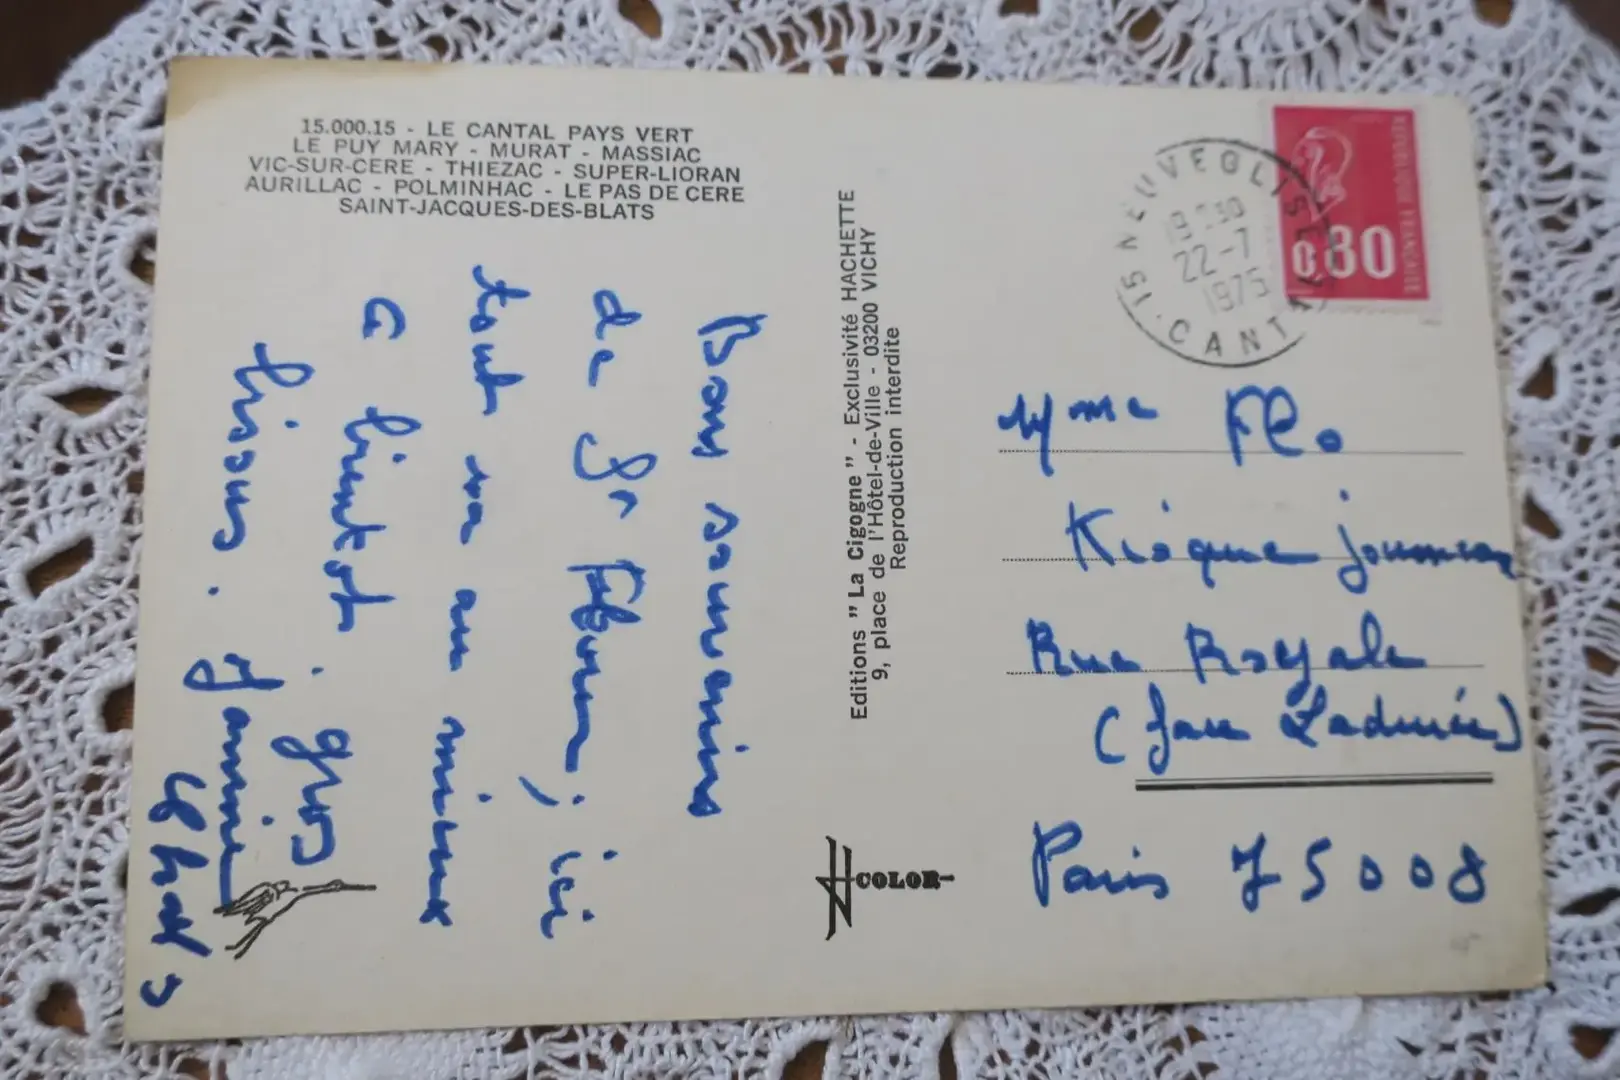 15.000.15 - LE CANTAL PAYS VERT
LE PUY MARY - MURAT - MASSIAC
VIC-SUR-CERE - THIEZAC - SUPER-LIORAN
AURILLAC - POLMINHAC - LE PAS DE CERE
SAINT-JACQUES-DES-BLATS
Bons souvenirs
de St Flour ; ici
tout va au mieux
a bientot. gros
bisous. Janine
Editions " La Cigogne " - Exclusivité HACHETTE
9, place de l'Hôtel-de-Ville - 03200 VICHY
Reproduction interdite
COLOR
15 NEUVEGLISE
22-7
1975
CANTAL
REPUBLIQUE FRANÇAISE
0,80
Mme Flo
Kiosque
Rue Royale
(face Ladurée)
Paris 75008